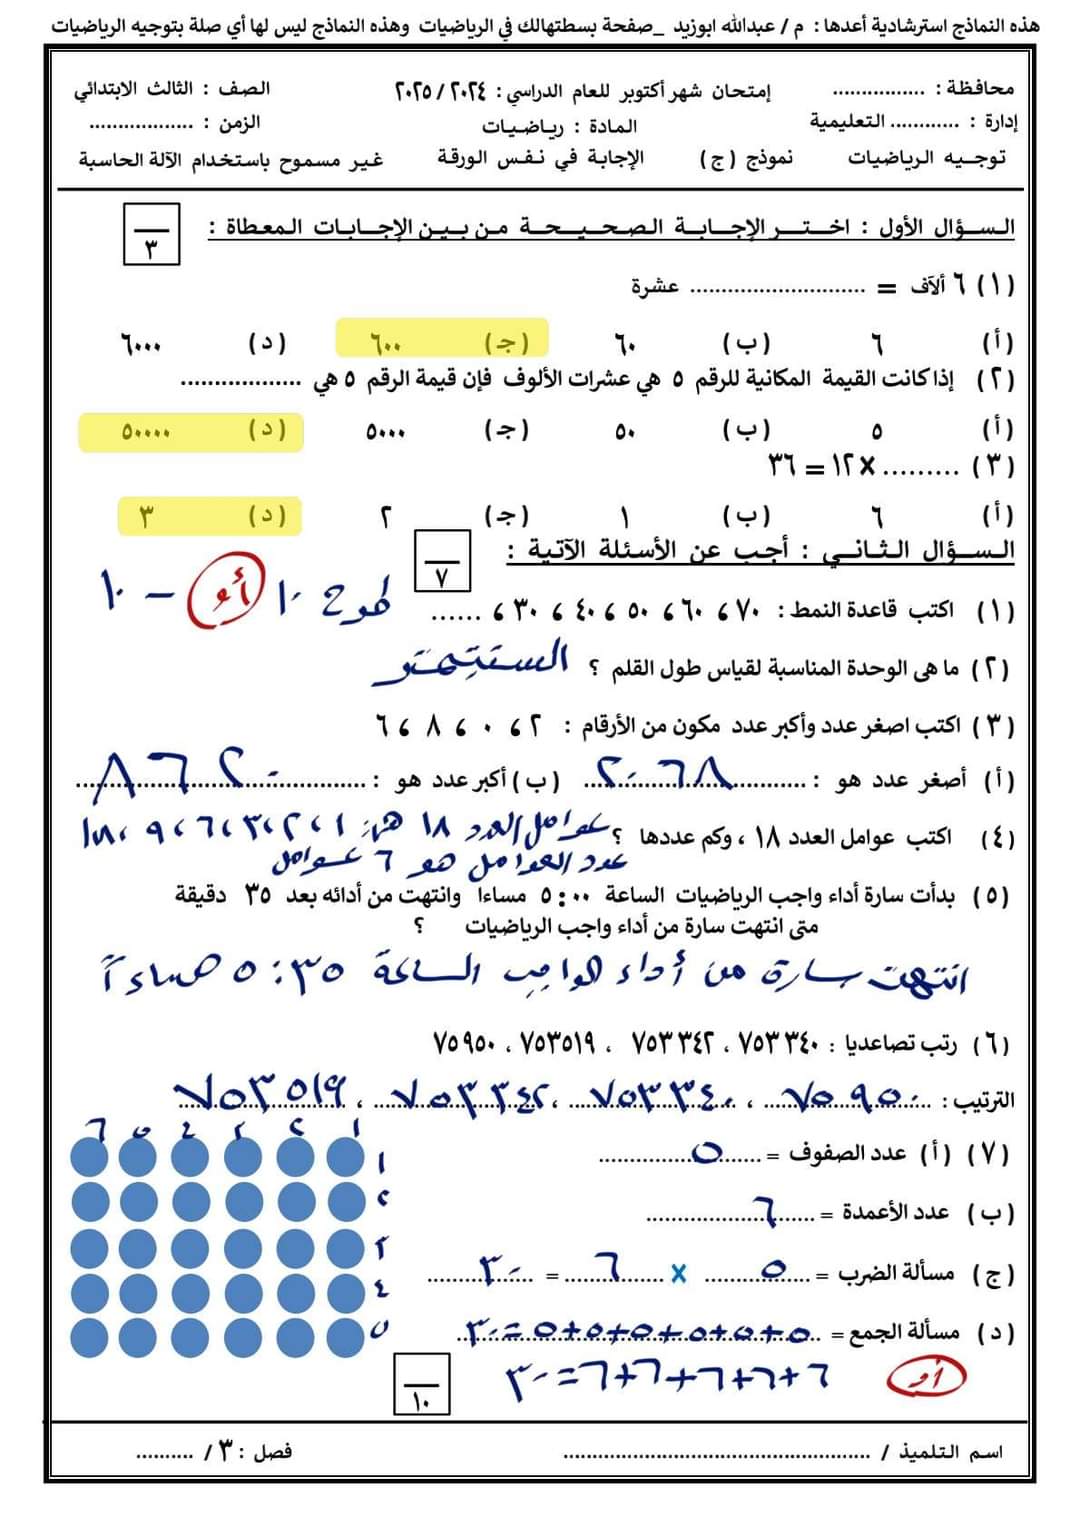 هذه النماذج استرشادية أعدها : م / عبدالله ابوزيد _صفحة بسطتهالك في الرياضيات وهذه النماذج ليس لها أي صلة بتوجيه الرياضيات
محافظة : ................ إمتحان شهر أكتوبر للعام الدراسي : ٢٠٢٤ / ٢٠٢٥ الصف : الثالث الابتدائي
إدارة : ............ التعليمية المادة : رياضيات الزمن : ..................
توجيه الرياضيات نموذج (ج) الإجابة في نفس الورقة غير مسموح باستخدام الآلة الحاسبة
السؤال الأول : اختر الإجابة الصحيحة من بين الإجابات المعطاة : ٣
(١) ٦ ألآف = ............................ عشرة
(أ) ٦ (ب) ٦٠ (جـ) ٦٠٠ (د) ٦٠٠٠
(٢) إذا كانت القيمة المكانية للرقم ٥ هي عشرات الألوف فإن قيمة الرقم ٥ هي ..................
(أ) ٥ (ب) ٥٠ (جـ) ٥٠٠٠ (د) ٥٠٠٠٠
(٣) ......... × ١٢ = ٣٦
(أ) ٦ (ب) ١ (جـ) ٢ (د) ٣
السؤال الثاني : أجب عن الأسئلة الآتية : ٧
(١) اكتب قاعدة النمط : ٧٠ ، ٦٠ ، ٥٠ ، ٤٠ ، ٣٠ ، ...... طرح ١٠ أو - ١٠
(٢) ما هى الوحدة المناسبة لقياس طول القلم ؟ السنتيمتر
(٣) اكتب اصغر عدد وأكبر عدد مكون من الأرقام : ٢ ، ٠ ، ٨ ، ٦
(أ) أصغر عدد هو : ٢٠٦٨ (ب) أكبر عدد هو : ٨٦٢٠
(٤) اكتب عوامل العدد ١٨ ، وكم عددها ؟ عوامل العدد ١٨ هي: ١ ، ٢ ، ٣ ، ٦ ، ٩ ، ١٨
عدد العوامل هو ٦ عوامل
(٥) بدأت سارة أداء واجب الرياضيات الساعة ٥:٠٠ مساءا وانتهت من أدائه بعد ٣٥ دقيقة
متى انتهت سارة من أداء واجب الرياضيات ؟
انتهت سارة من أداء الواجب الساعة ٥:٣٥ مساءاً
(٦) رتب تصاعديا : ٧٥٣٣٤٠ ، ٧٥٣٣٤٢ ، ٧٥٣٥١٩ ، ٧٥٩٥٠
الترتيب : ٧٥٩٥٠ ، ٧٥٣٣٤٠ ، ٧٥٣٣٤٢ ، ٧٥٣٥١٩
١ ٢ ٣ ٤ ٥ ٦
(٧) (أ) عدد الصفوف = ٥ ١
(ب) عدد الأعمدة = ٦ ٢
٣
(ج) مسألة الضرب = ٥ × ٦ = ٣٠ ٤
(د) مسألة الجمع = ٥+٥+٥+٥+٥+٥=٣٠ ٥
أو ٦+٦+٦+٦+٦=٣٠
١٠
اسم التلميذ / .................................................... فصل : ٣ / ..........